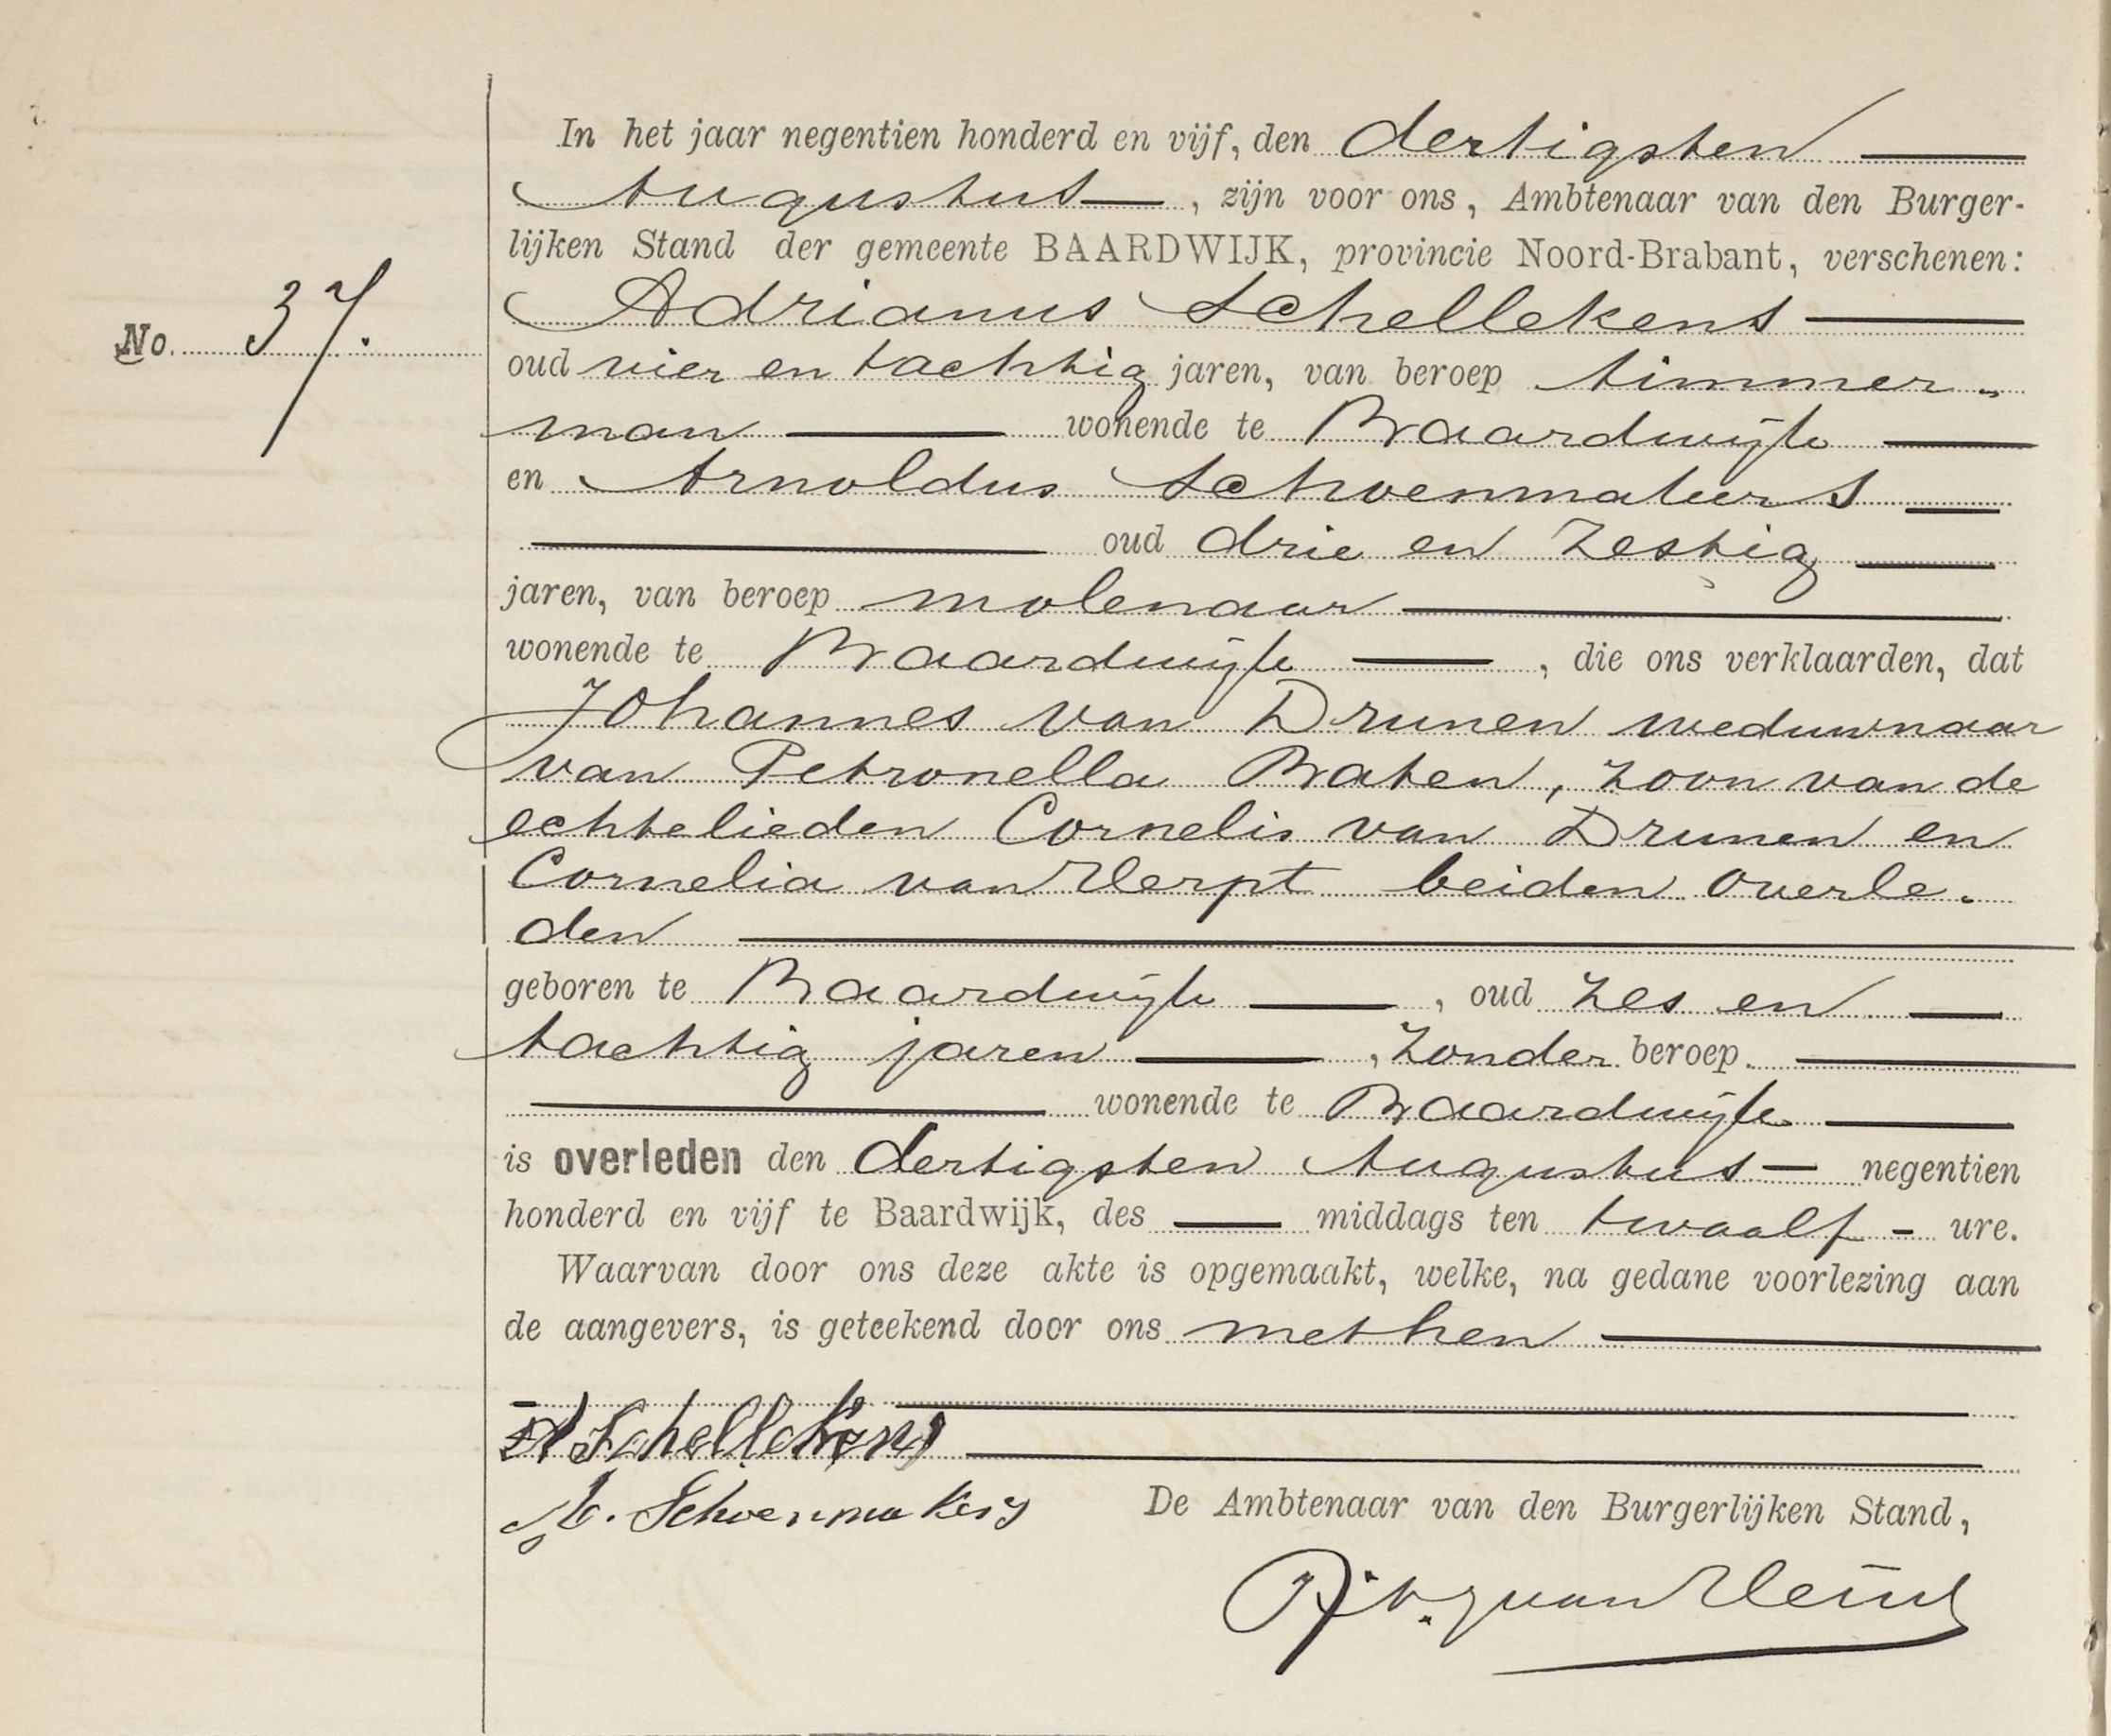 In het jaar negentien honderd en vijf, den dertigsten
Augustus, zijn voor ons, Ambtenaar van den Burger-
lijken Stand der gemeente BAARDWIJK, provincie Noord-Brabant, verschenen:
Adrianus Schellekens
No. 37.
oud vier en tachtig jaren, van beroep timmer-
man wonende te Baardwijk
en Arnoldus Schoenmakers
oud drie en zestig
jaren, van beroep molenaar
wonende te Baardwijk, die ons verklaarden, dat
Johannes van Drunen weduwnaar
van Petronella Braken, zoon van de
echtelieden Cornelis van Drunen en
Cornelia van Herpt beiden overle-
den
geboren te Baardwijk, oud zes en
tachtig jaren, zonder beroep
wonende te Baardwijk
is overleden den dertigsten Augustus negentien
honderd en vijf te Baardwijk, des middags ten twaalf ure.
Waarvan door ons deze akte is opgemaakt, welke, na gedane voorlezing aan
de aangevers, is geteekend door ons met hen
A Schellekens
A. Schoenmakers
De Ambtenaar van den Burgerlijken Stand,